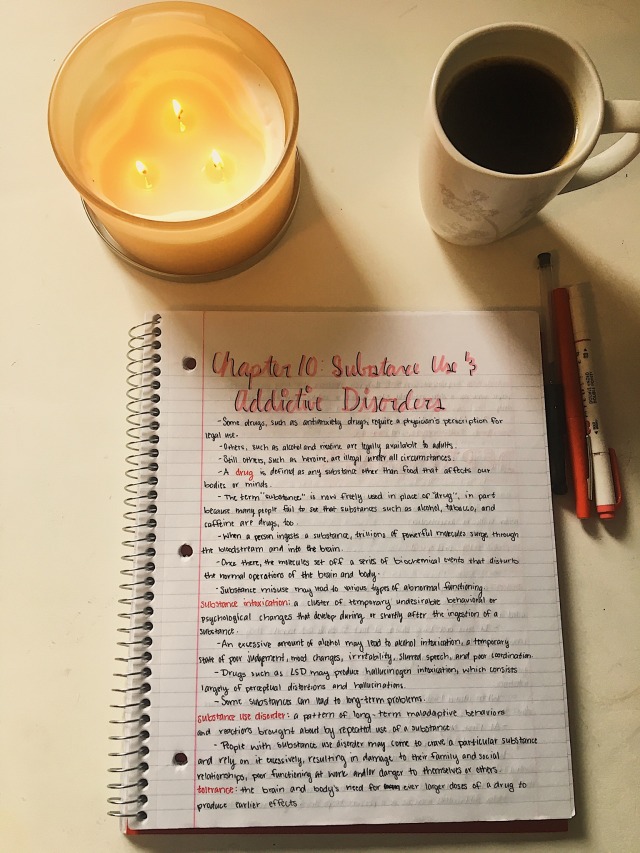 Chapter 10: Substance Use &
Addictive Disorders
- Some drugs, such as antianxiety drugs, require a physician's perscription for
legal use.
- Others, such as alcohol and nicotine are legally available to adults.
- Still others, such as heroine, are illegal under all circumstances.
- A drug is defined as any substance other than food that affects our
bodies or minds.
- The term "substance" is now freely used in place of "drug", in part
because many people fail to see that substances such as alcohol, tobacco, and
caffeine are drugs, too.
- When a person ingests a substance, trillions of powerful molecules surge through
the bloodstream and into the brain.
- Once there, the molecules set off a series of biochemical events that disturb
the normal operations of the brain and body.
- Substance misuse may lead to various types of abnormal functioning.
Substance intoxication: a cluster of temporary undesirable behavioral or
psychological changes that develop during or shortly after the ingestion of a
substance.
- An excessive amount of alcohol may lead to alcohol intoxication, a temporary
state of poor judgement, mood changes, irritability, slurred speech, and poor coordination.
- Drugs such as LSD may produce hallucinogen intoxication, which consists
largely of perceptual distortions and hallucinations.
- Some substances can lead to long-term problems.
Substance use disorder: a pattern of long-term maladaptive behaviors
and reactions brought about by repeated use of a substance.
- People with substance use disorder may come to crave a particular substance
and rely on it excessively, resulting in damage to their family and social
relationships, poor functioning at work and/or danger to themselves or others.
tolerance: the brain and body's need for ever larger doses of a drug to
produce earlier effects